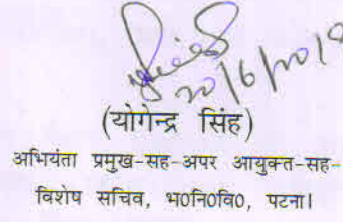 20/6/2018
(योगेन्द्र सिंह)
अभियंता प्रमुख-सह-अपर आयुक्त-सह-
विशेष सचिव, भ0नि0वि0, पटना।